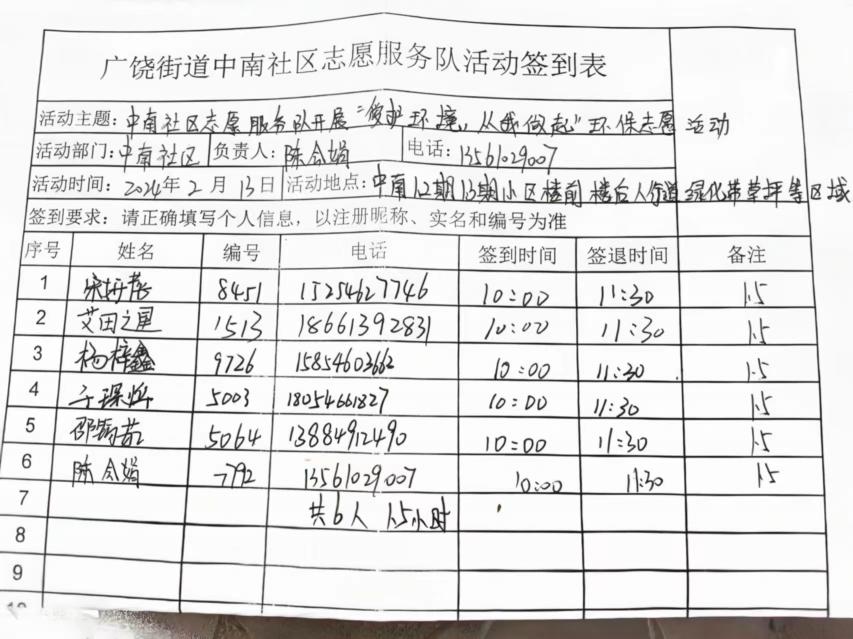 广饶街道中南社区志愿服务队活动签到表
活动主题：中南社区志愿服务队开展“爱护环境，从我做起”环保志愿活动
活动部门：中南社区 负责人：陈会娟 电话：13561029007
活动时间：2024年2月13日 活动地点：中南12期13期小区楼前楼后人行道绿化带草坪等区域
签到要求：请正确填写个人信息，以注册昵称、实名和编号为准
序号 姓名 编号 电话 签到时间 签退时间 备注
1 8451 15254627746 10:00 11:30 1.5
2 艾田之星 1513 18661392831 10:00 11:30 1.5
3 杨梓鑫 9726 15854603662 10:00 11:30 1.5
4 5003 18054661827 10:00 11:30 1.5
5 5064 13884912490 10:00 11:30 1.5
6 陈会娟 7792 13561029007 10:00 11:30 1.5
7 共6人 1.5小时
8
9
10